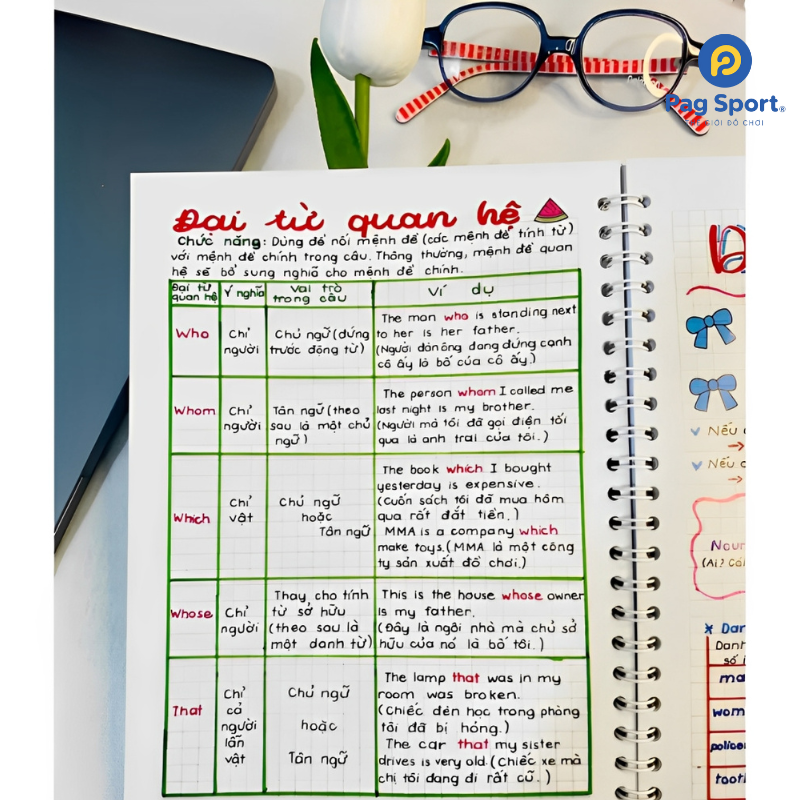 Pag Sport®
THẾ GIỚI ĐỒ CHƠI
Đại từ quan hệ
Chức năng: Dùng để nối mệnh đề (các mệnh đề tính từ)
với mệnh đề chính trong câu. Thông thường, mệnh đề quan
hệ sẽ bổ sung nghĩa cho mệnh đề chính.
Đại từ
quan hệ
Ý nghĩa
Vai trò
trong câu
Ví dụ
Who
Chỉ
người
Chủ ngữ (đứng
trước động từ)
The man who is standing next
to her is her father.
(Người đàn ông đang đứng cạnh
cô ấy là bố của cô ấy.)
Whom
Chỉ
người
Tân ngữ (theo
sau là một chủ
ngữ)
The person whom I called me
last night is my brother.
(Người mà tôi đã gọi điện tối
qua là anh trai của tôi.)
Which
Chỉ
vật
Chủ ngữ
hoặc
Tân ngữ
The book which I bought
yesterday is expensive.
(Cuốn sách tôi đã mua hôm
qua rất đắt tiền.)
MMA is a company which
make toys. (MMA là một công
ty sản xuất đồ chơi.)
Whose
Chỉ
người
Thay cho tính
từ sở hữu
(theo sau là
một danh từ)
This is the house whose owner
is my father.
(Đây là ngôi nhà mà chủ sở
hữu của nó là bố tôi.)
That
Chỉ
cả
người
lẫn
vật
Chủ ngữ
hoặc
Tân ngữ
The lamp that was in my
room was broken.
(Chiếc đèn học trong phòng
tôi đã bị hỏng.)
The car that my sister
drives is very old. (Chiếc xe mà
chị tôi đang đi rất cũ.)
Nếu
Nếu
Nour
(Ai? Cái
* Dan
Danh
số i
ma
wom
police
toot